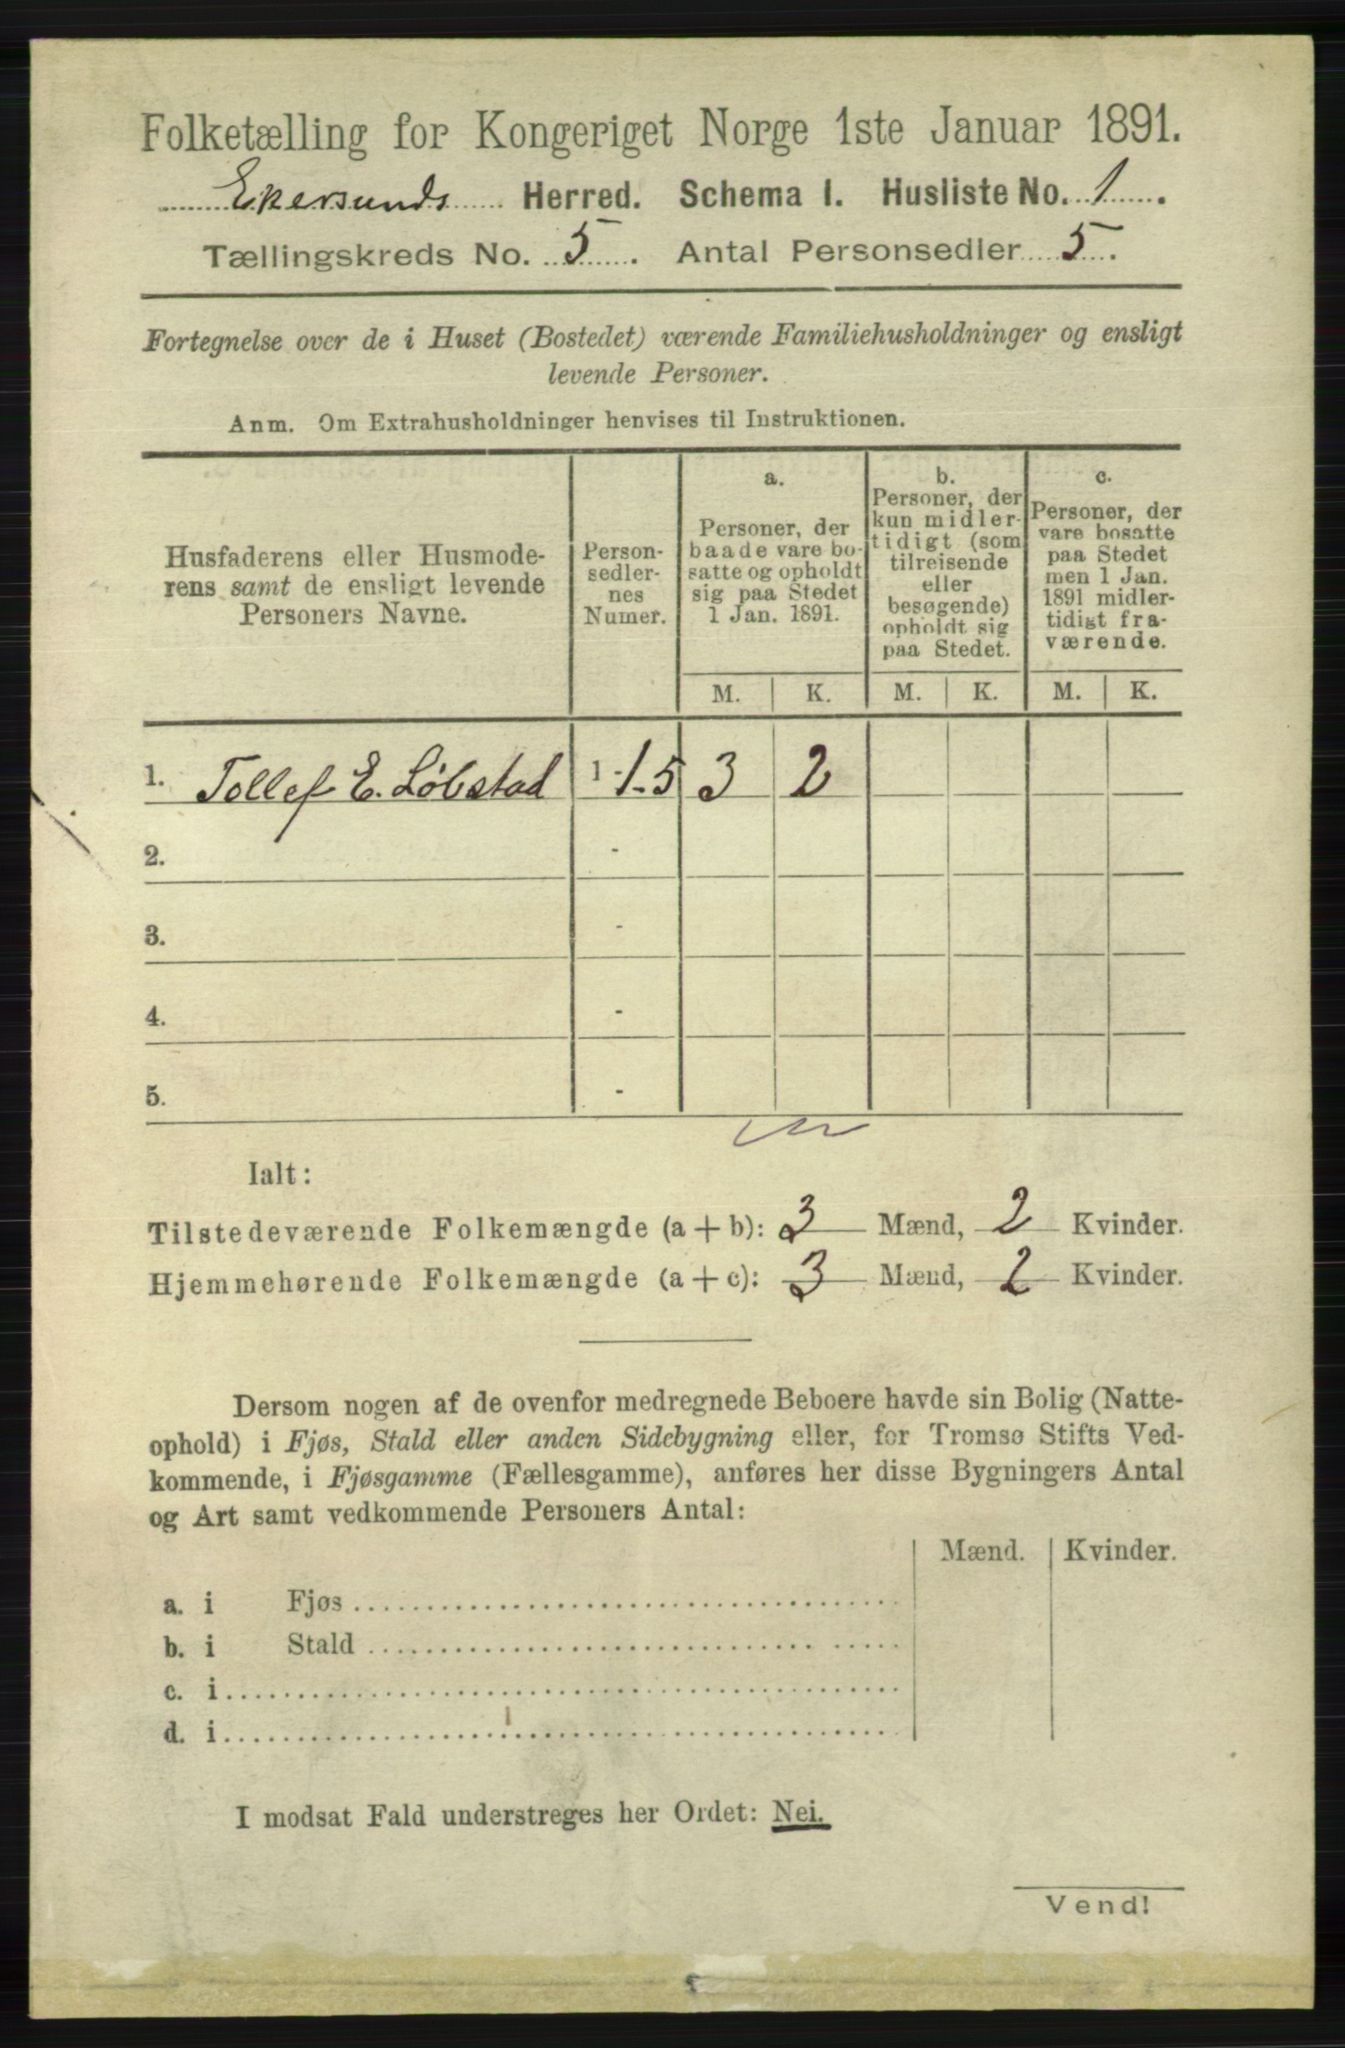 Folketælling for Kongeriget Norge 1ste Januar 1891.
Ekersunds Herred. Schema I. Husliste No. 1.
Tællingskreds No. 5. Antal Personsedler 5.
Fortegnelse over de i Huset (Bostedet) værende Familiehusholdninger og ensligt
levende Personer.
Anm. Om Extrahusholdninger henvises til Instruktionen.
Husfaderens eller Husmode-
rens samt de ensligt levende
Personers Navne.
Person-
sedler-
nes
Numer.
a.
Personer, der
baade vare bo-
satte og opholdt
sig paa Stedet
1 Jan. 1891.
b.
Personer, der
kun midler-
tidigt (som
tilreisende
eller
besøgende)
opholdt sig
paa Stedet.
c.
Personer, der
vare bosatte
paa Stedet
men 1 Jan.
1891 midler-
tidigt fra-
værende.
M. K. M. K. M. K.
1. Tollef E. Löbstad 1 - 1-5 3 2
2. -
3. -
4. -
5. -
Ialt:
Tilstedeværende Folkemængde (a + b): 3 Mænd, 2 Kvinder.
Hjemmehørende Folkemængde (a + c): 3 Mænd, 2 Kvinder.
Dersom nogen af de ovenfor medregnede Beboere havde sin Bolig (Natte-
ophold) i Fjøs, Stald eller anden Sidebygning eller, for Tromsø Stifts Ved-
kommende, i Fjøsgamme (Fællesgamme), anføres her disse Bygningers Antal
og Art samt vedkommende Personers Antal:
Mænd. Kvinder.
a. i Fjøs
b. i Stald
c. i
d. i
I modsat Fald understreges her Ordet: Nei.
Vend!